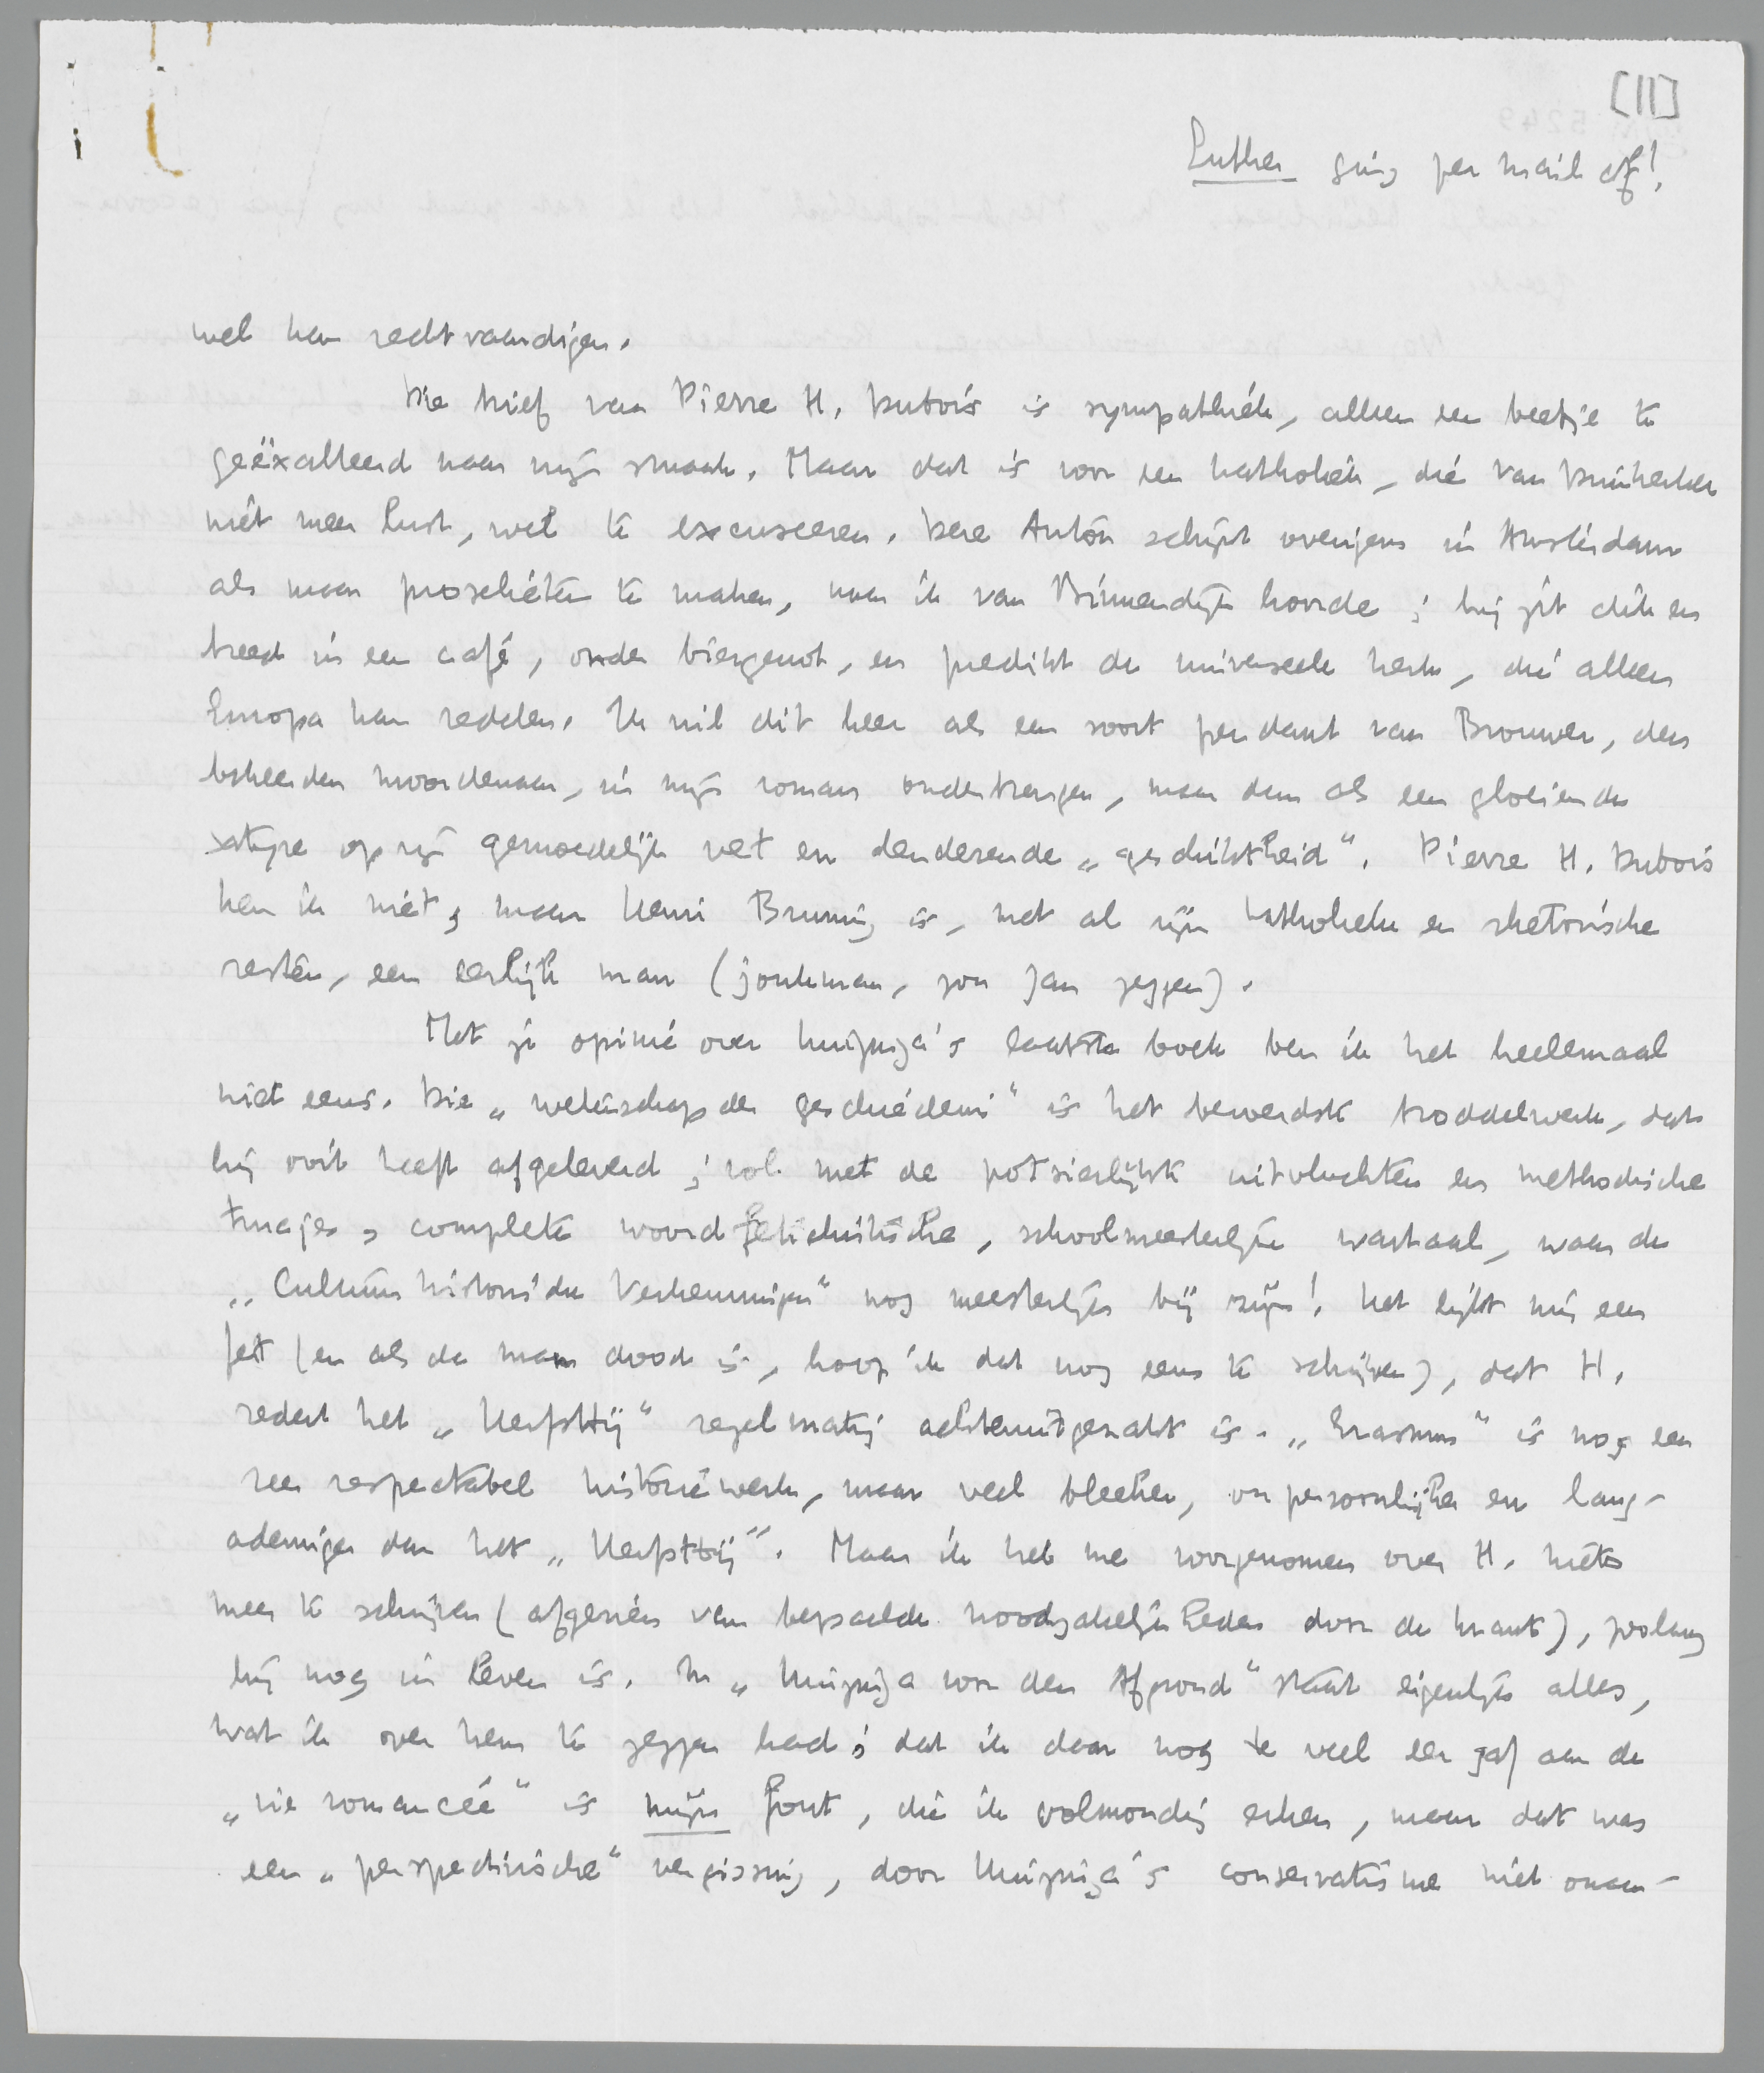 [II]
Luther ging per mail af!
wel kan rechtvaardigen.
Die brief van Pierre H. Dubois is sympathiek, alleen een beetje te
geëxalteerd naar mijn smaak. Maar dat is voor een katholiek, die van Duinkerken
niet meer lust, wel te excuseeren. Deze Anton schijnt overigens in Amsterdam
als maar proselieten te maken, naar ik van Binnendijk hoorde; hij zit dik en
breed in een café, onder biergenot, en predikt de universeele kerk, die alleen
Europa kan redden. Ik wil dit heer als een soort pendant van Brouwer, den
bekeerden moordenaar, in mijn roman onderbrengen, maar dan als een gloeiende
satyre op zijn gemoedelijk vet en denderende „geschiktheid". Pierre H. Dubois
ken ik niet, maar Henri Bruning is, met al zijn katholieke en rhetorische
resten, een eerlijk man (jonkman, zou Jan zeggen).
Met je opinie over Huizinga's laatste boek ben ik het heelemaal
niet eens. Die „wetenschap der geschiedenis" is het beverdste kroddelwerk, dat
hij ooit heeft afgeleverd; vol met de potsierlijkste uitvluchten en methodische
trucjes, complete woordfetichistische, schoolmeesterlijke wartaal, waar de
„Cultuurhistorische Verkenningen" nog meesterlijk bij zijn! Het lijkt mij een
feit (en als de man dood is, hoop ik dat nog eens te schrijven), dat H.
sedert het „Herfsttij" regelmatig achteruitgezakt is. „Erasmus" is nog een
zeer respectabel historiewerk, maar veel bleeker, onpersoonlijker en lang-
ademiger dan het „Herfsttij". Maar ik heb me voorgenomen over H. niets
meer te schrijven (afgezien van bepaalde noodzakelijkheden voor de krant), zoolang
hij nog in leven is. In „Huizinga voor den Afgrond" staat eigenlijk alles,
wat ik over hem te zeggen had; dat ik daar nog te veel eer gaf aan de
„vie romancée" is mijn fout, die ik volmondig erken, maar dat was
een „perspectivische" vergissing, door Huizinga's conservatisme niet onaan-